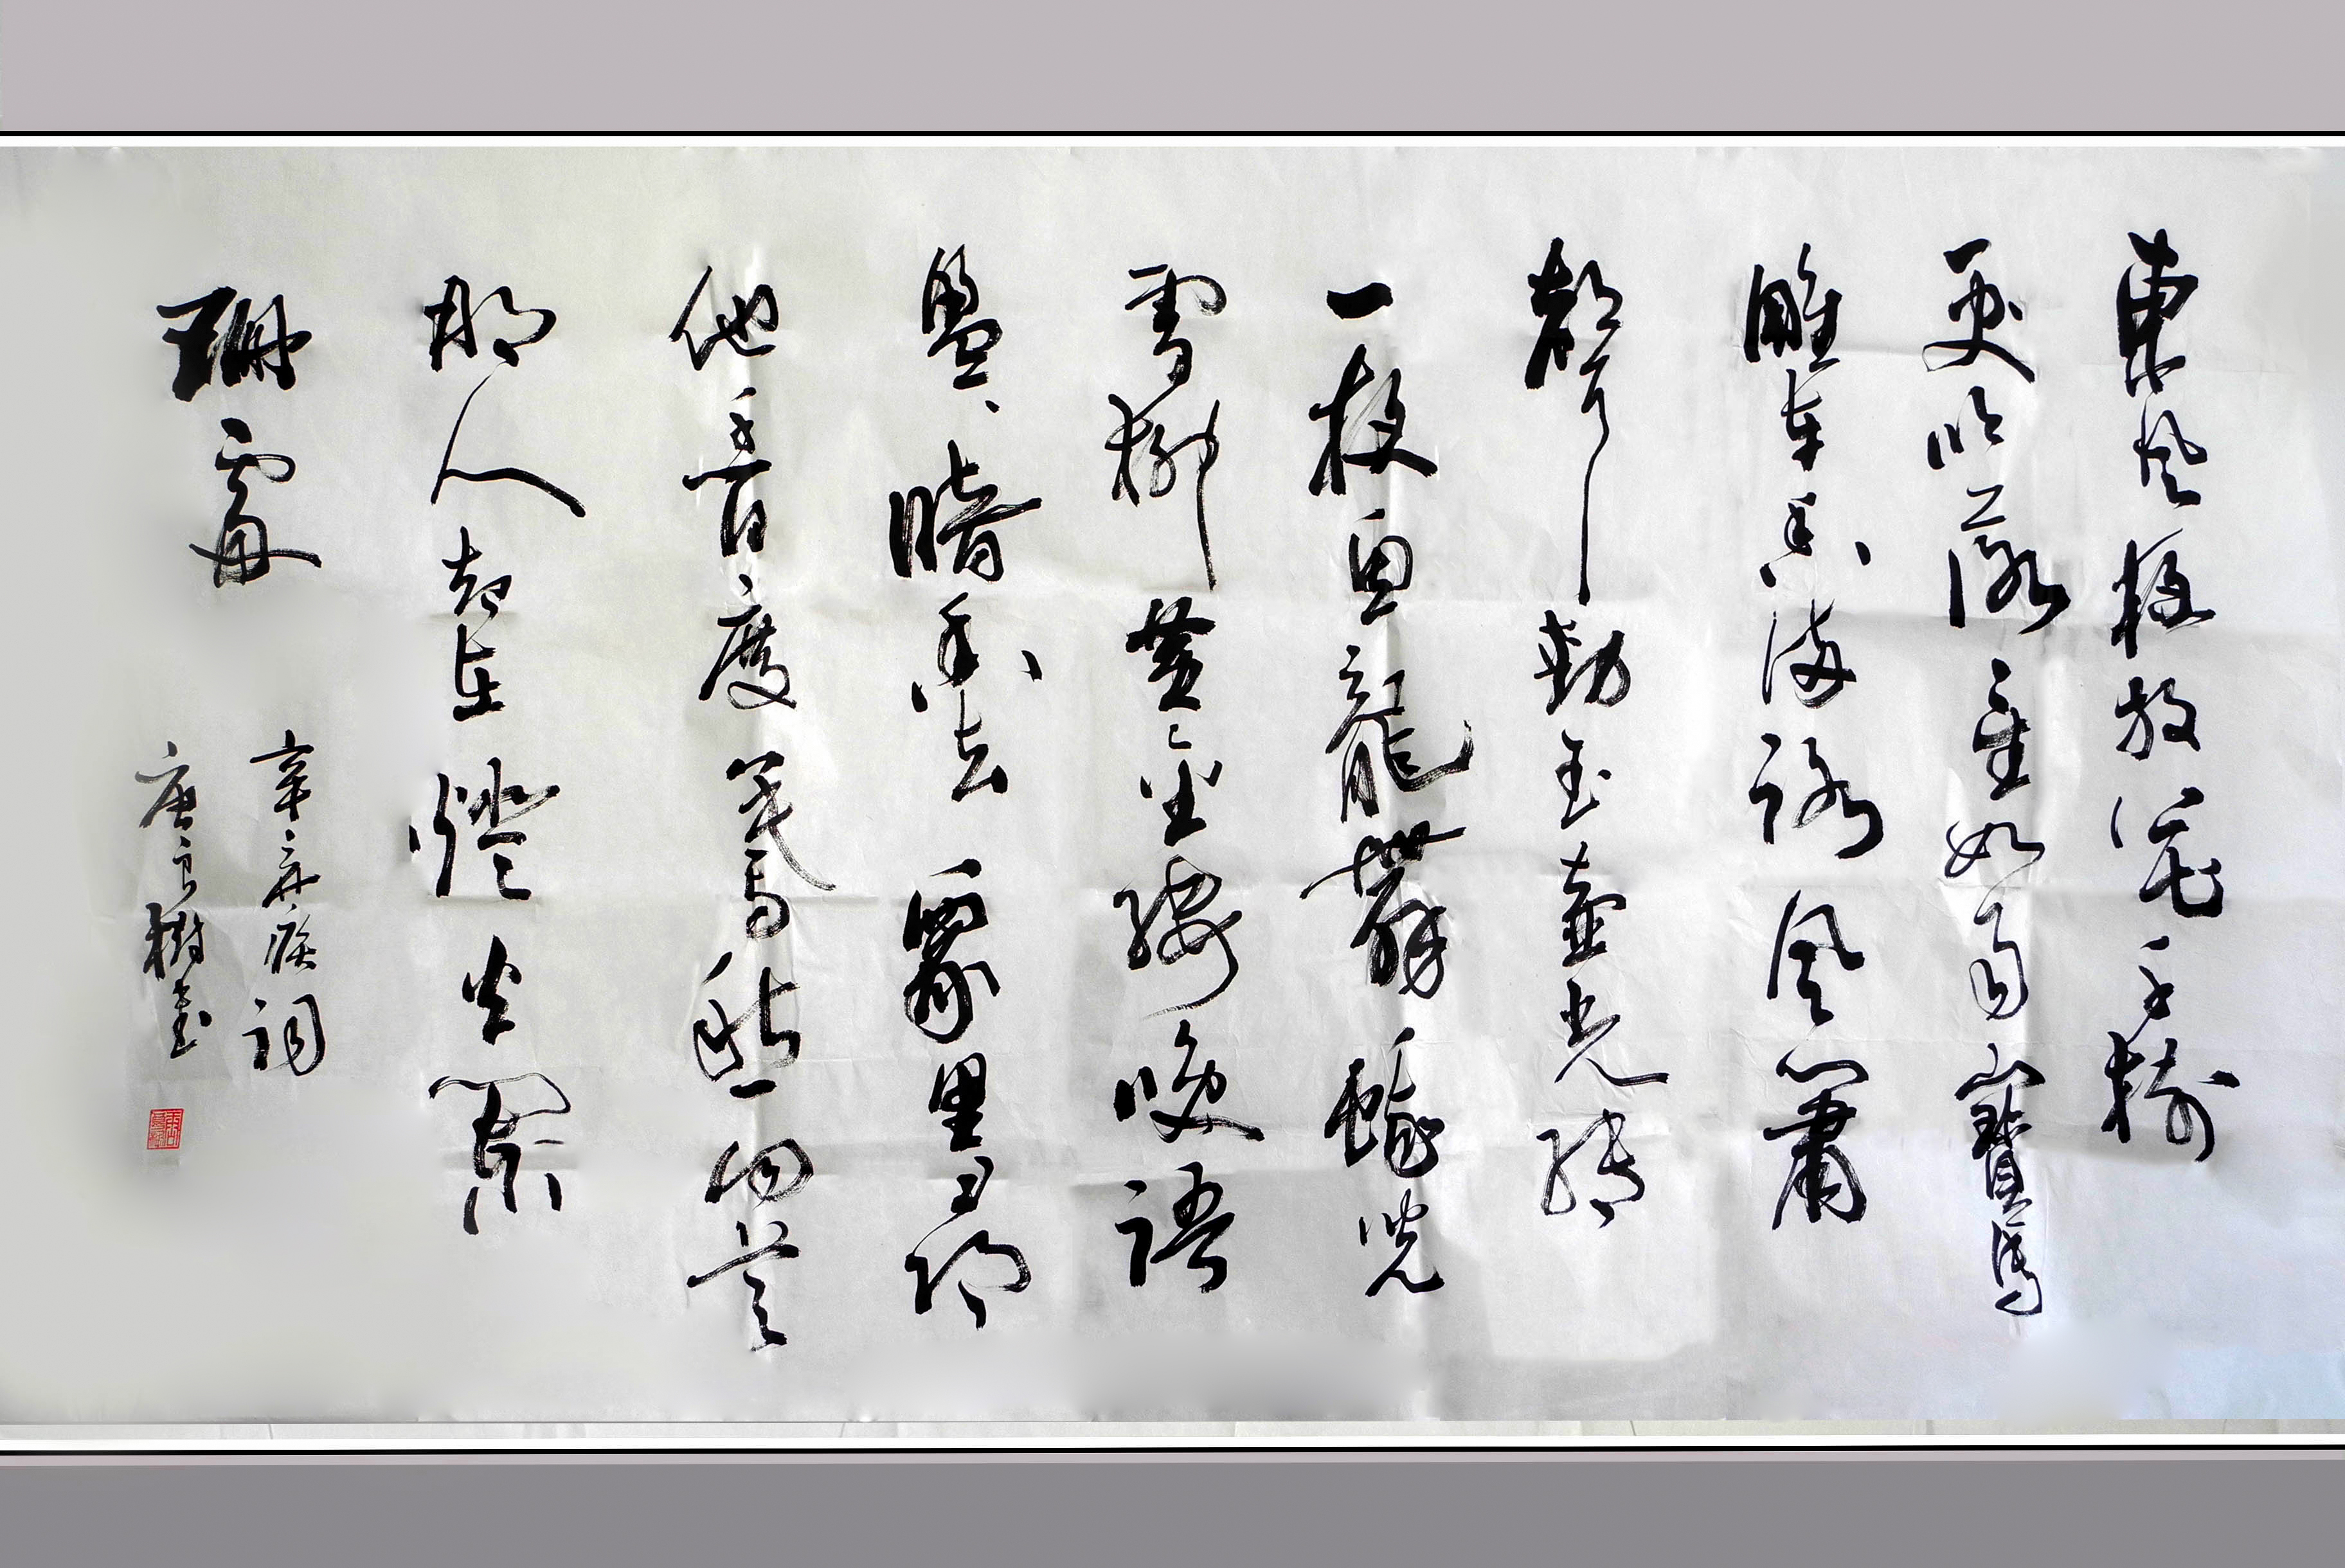 東風夜放花千樹
更吹落星如雨寶馬
雕車香滿路風簫
聲動玉壺光轉
一夜魚龍舞蛾兒
雪柳黃金縷咲語
盈、暗香去眾里尋
他千百度驀然回首
那人卻在燈火闌
珊處
辛棄疾詞
唐良樹書